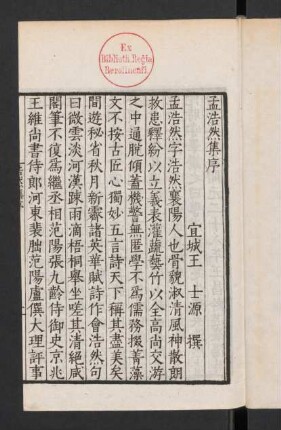 Ex
Biblioth. Regia
Berolinensi.
孟浩然集序
宜城王士源撰
孟浩然字浩然襄陽人也骨貌淑清風神散朗
救患釋紛以立義表灌蔬藝竹以全高尚交游
之中通脫傾蓋機警無匿學不為儒務掇菁藻
文不按古匠心獨妙五言詩天下稱其盡美矣
間遊秘省秋月新霽諸英華賦詩作會浩然句
曰微雲淡河漢疎雨滴梧桐舉坐嗟其清絕咸
閣筆不復為繼丞相范陽張九齡侍御史京兆
王維尚書侍郎河東裴朏范陽盧僎大理評事